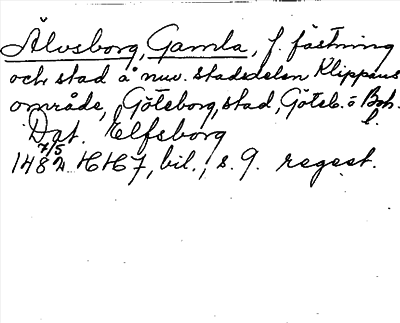 Älvsborg, Gamla, f. fästning
och stad å nuv. stadsdelen Klippans
område, Göteborg, stad, Göteb. o Boh.
l.
Dat. Elfsborg
7/5
1482 HH7, bil., s. 9. regest.